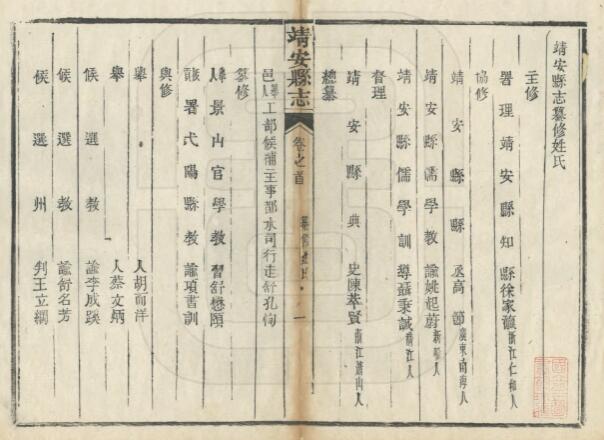 靖安縣志纂修姓氏
主修
署理靖安縣知縣徐家瀛浙江仁和人
協修
靖安縣縣丞高節廣東南海人
靖安縣儒學教諭姚起蔚新昌人
靖安縣儒學訓導益秉誠晉江人
督理
靖安縣典史陳萃賢浙江蕭山人
總纂
靖安縣志
卷之首
纂修姓氏
一
邑舉人工部候補主事都水司行走舒孔恂
纂修
舉人景山官學教習舒懋頤
署弋陽縣教諭項書訓
與修
舉人胡而洋
舉人蔡文炳
候選教諭李成蹊
候選教諭舒名芳
候選州判王立綱